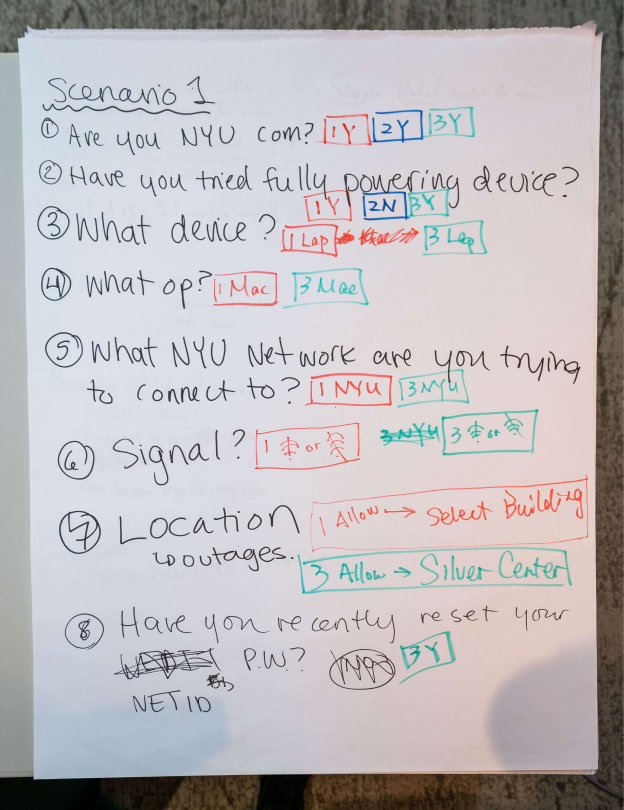 Scenario 1
① Are you NYU com? 1Y 2Y 3Y
② Have you tried fully powering device?
1Y 2N 3Y
③ What device? 1 Lap 3 Lap
④ What op? 1 Mac 3 Mac
⑤ What NYU Network are you trying
to connect to? 1 NYU 3 NYU
⑥ Signal? 1 or 3 NYU 3 or
⑦ Location 1 Allow → Select Building
↳ outages.
3 Allow → Silver Center
⑧ Have you recently reset your
P.W.? 3Y
NET ID